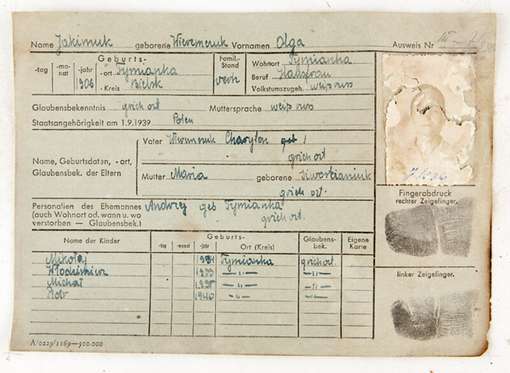 Name Jakimiuk geborene Wieremczuk Vornamen Olga Ausweis Nr
Geburts- Famil.-Stand Wohnort Tymianka
-tag -monat -jahr -ort (Gem.) Tymianka verh Beruf Hausfrau
906 -Kreis Bielsk Volkstumszugeh. weiß rus
Glaubensbekenntnis griech ort Muttersprache weiß rus
Staatsangehörigkeit am 1.9.1939 Polen
Vater Charyton geb
griech ort
Name, Geburtsdaten, -ort, Glaubensbek. der Eltern
Mutter Maria geborene
griech ort.
Personalien des Ehemannes Andrzej geb Tymianka
(auch Wohnort od. wann u. wo verstorben — Glaubensbek.) griech ort.
Fingerabdruck
rechter Zeigefinger.
Name der Kinder Geburts- Glaubensbek. Eigene Karte
-tag -monat -jahr Ort (Kreis)
Mikołaj Tymianka griech ort
1933 -"- -"-
Michał -"- -"-
1940 -"- -"-
linker Zeigefinger.
A/0229/1169—500.000